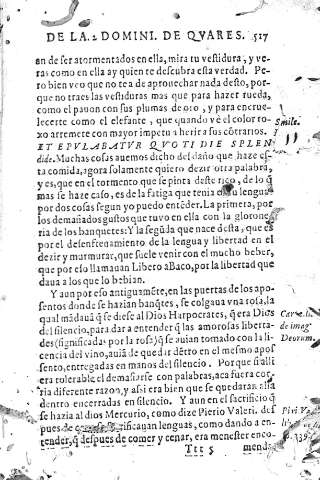 DE LA 2 DOMINI. DE QVARES. 517
an de ser atormentados en ella, mira tu vestidura, y ve-
ras como en ella ay quien te descubra esta verdad. Pe-
ro bien veo que no te a de aprouechar nada desto, por-
que no traes las vestiduras mas que para hazer rueda,
como el pauon con sus plumas de oro, y para encrue-
lecerte como el elefante, que quando vè el color ro-
xo arremete con mayor impetu a herir a sus cõtrarios.
Smile.
ET EPVLABATVR QVOTIDIE SPLEN
dide. Muchas cosas auemos dicho del daño que haze es-
ta comida, agora solamente quiero dezir otra palabra,
y es, que en el tormento que se pinta deste rico, de lo q̃
mas se haze caso, es de la fatiga que tenia en su lengua
por dos cosas segun yo puedo entẽder. La primera, por
los demasiados gustos que tuvo en ella con la glorone
ria de los banquetes: Y la segũda que nace desta, que es
por el desenfrenamiento de la lengua y libertad en el
dezir y murmurar, que suele venir con el mucho beber,
que por eso llamauan Libero a Baco, por la libertad que
daua a los que lo bebian.
Y aun por eso antiguamẽte, en las puertas de los apo-
sentos donde se hazian banq̃tes, se colgaua vna rosa, la
qual mãdauã q̃ se diese al Dios Harpocrates, q̃ era Dios
del silencio, para dar a entender q̃ las amorosas liberta-
des (significadas por la rosa) q̃ se auian tomado con la li-
de imag
Deorum.
cencia del vino, auiã de quedar dẽtro en el mesmo apo
sento, entregadas en manos del silencio. Porque si alli
era tolerable el demasiarse con palabras, aca fuera cor-
ria diferente razon, y asi era bien que se quedaran alla
dentro encerradas en silencio. Y aun en el sacrificio q̃
se hazia al dios Mercurio, como dize Pierio Valeri. des
pues de sacrificauan lenguas, como dando a en-
tender, q̃ despues de comer y cenar, era menester enco-
Ttt 5 menda